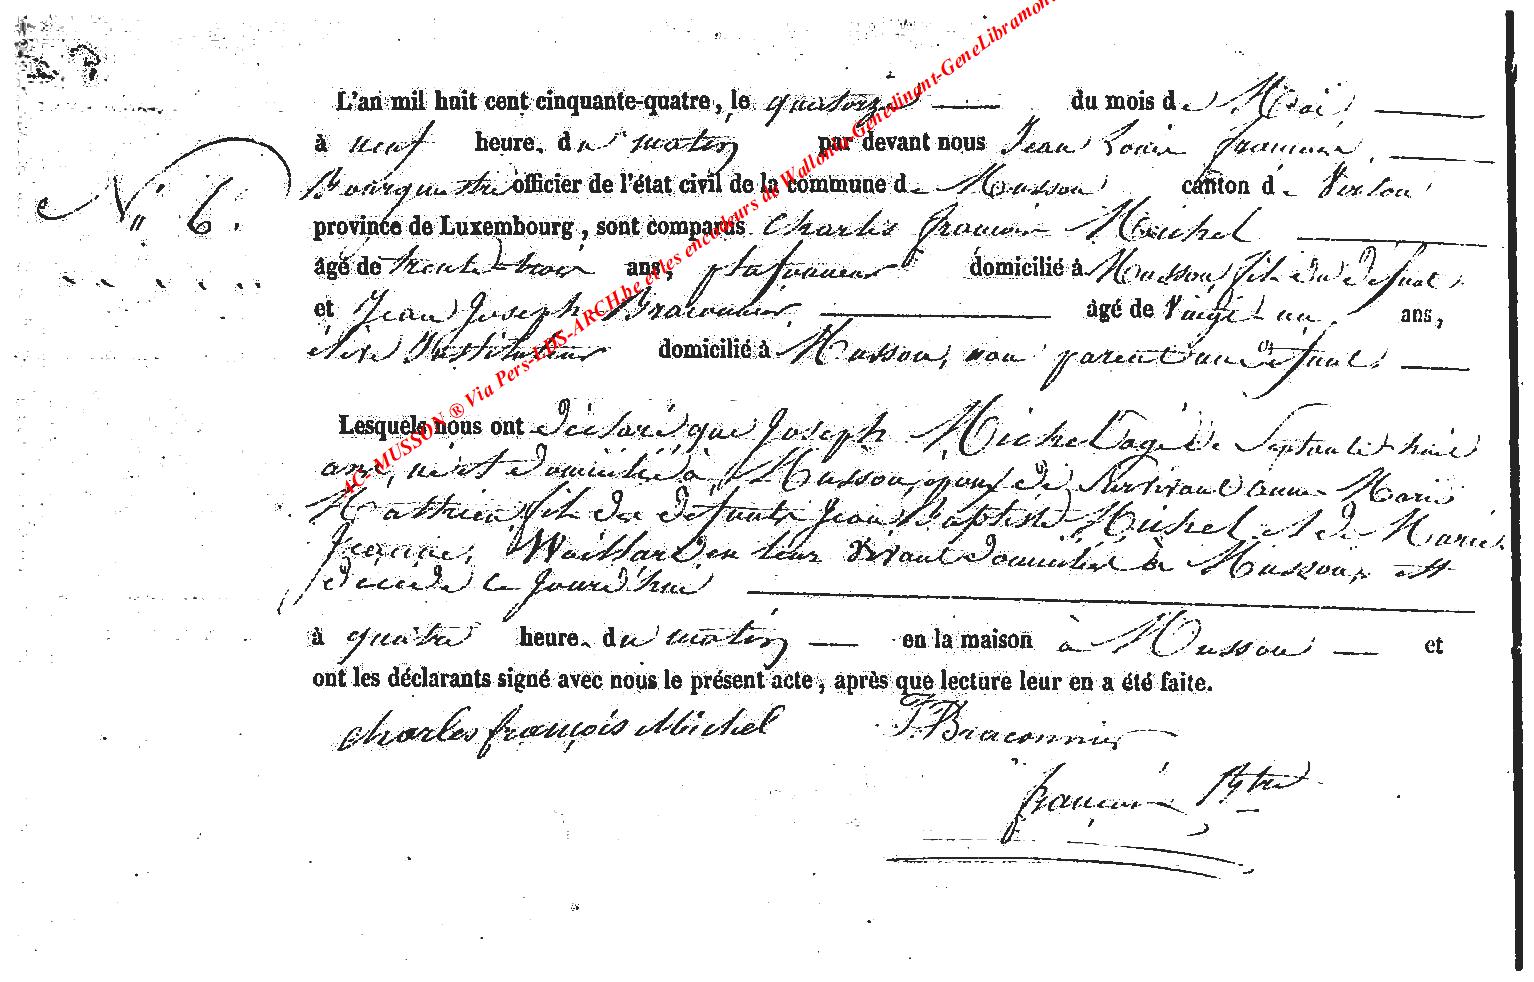 L'an mil huit cent cinquante-quatre, le quatorze du mois de Mai,
à neuf heures du matin par devant nous Jean Louis François,
Bourgmestre officier de l'état civil de la commune de Musson canton de Virton
N° 6.
province de Luxembourg, sont comparus Charles François Michel
âgé de trente-trois ans, plafonneur domicilié à Musson, fils du défunt
et Jean Joseph Braconnier, âgé de Vingt un ans,
élève Instituteur domicilié à Musson, non parent au défunt.
Lesquels nous ont déclaré que Joseph Michel âgé de Septante
ans, né et domicilié à Musson, époux de Survivant anne Marie
Mathieu, fils des défunts Jean Baptiste Michel et de Marie
en leur vivant domiciliés à Musson, est
décédé ce jourd'hui
à quatre heures du matin en la maison à Musson et
ont les déclarants signé avec nous le présent acte, après que lecture leur en a été faite.
charles françois Michel J. Braconnier
françois Bgtre
AC- MUSSON ® Via Pers-LDS-ARCH.be et les encodeurs de Wallonia-Genedinant-GeneLibramont